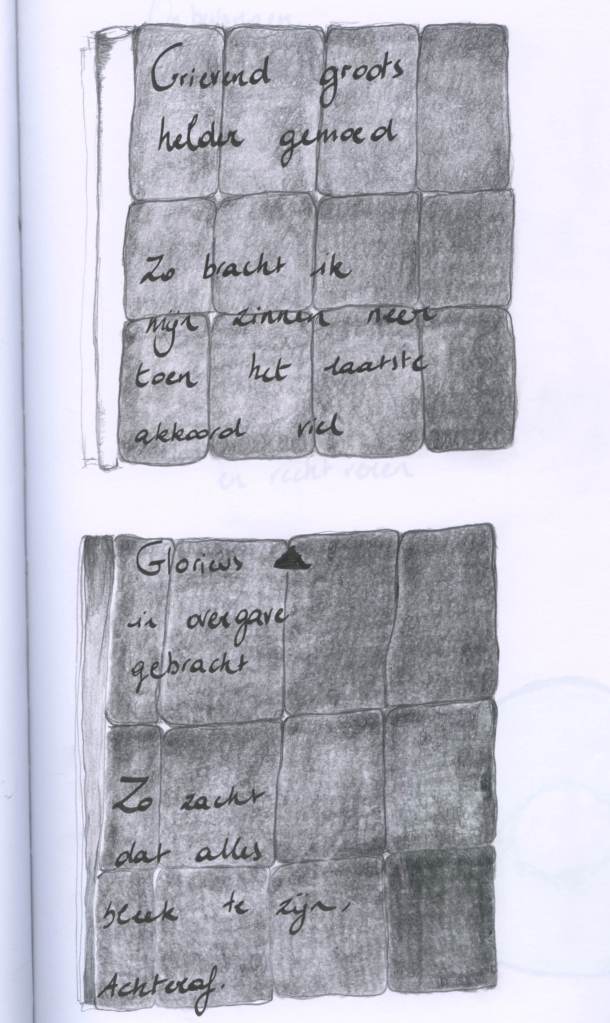 Grievend groots
helder gemoed
Zo bracht ik
mijn zinnen neer
toen het laatste
akkoord viel
Glorieus
in overgave
gebracht
Zo zacht
dat alles
bleek te zijn,
Achteraf.